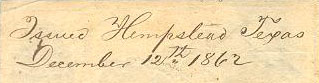 Issued Hempstead Texas
December 12th 1862